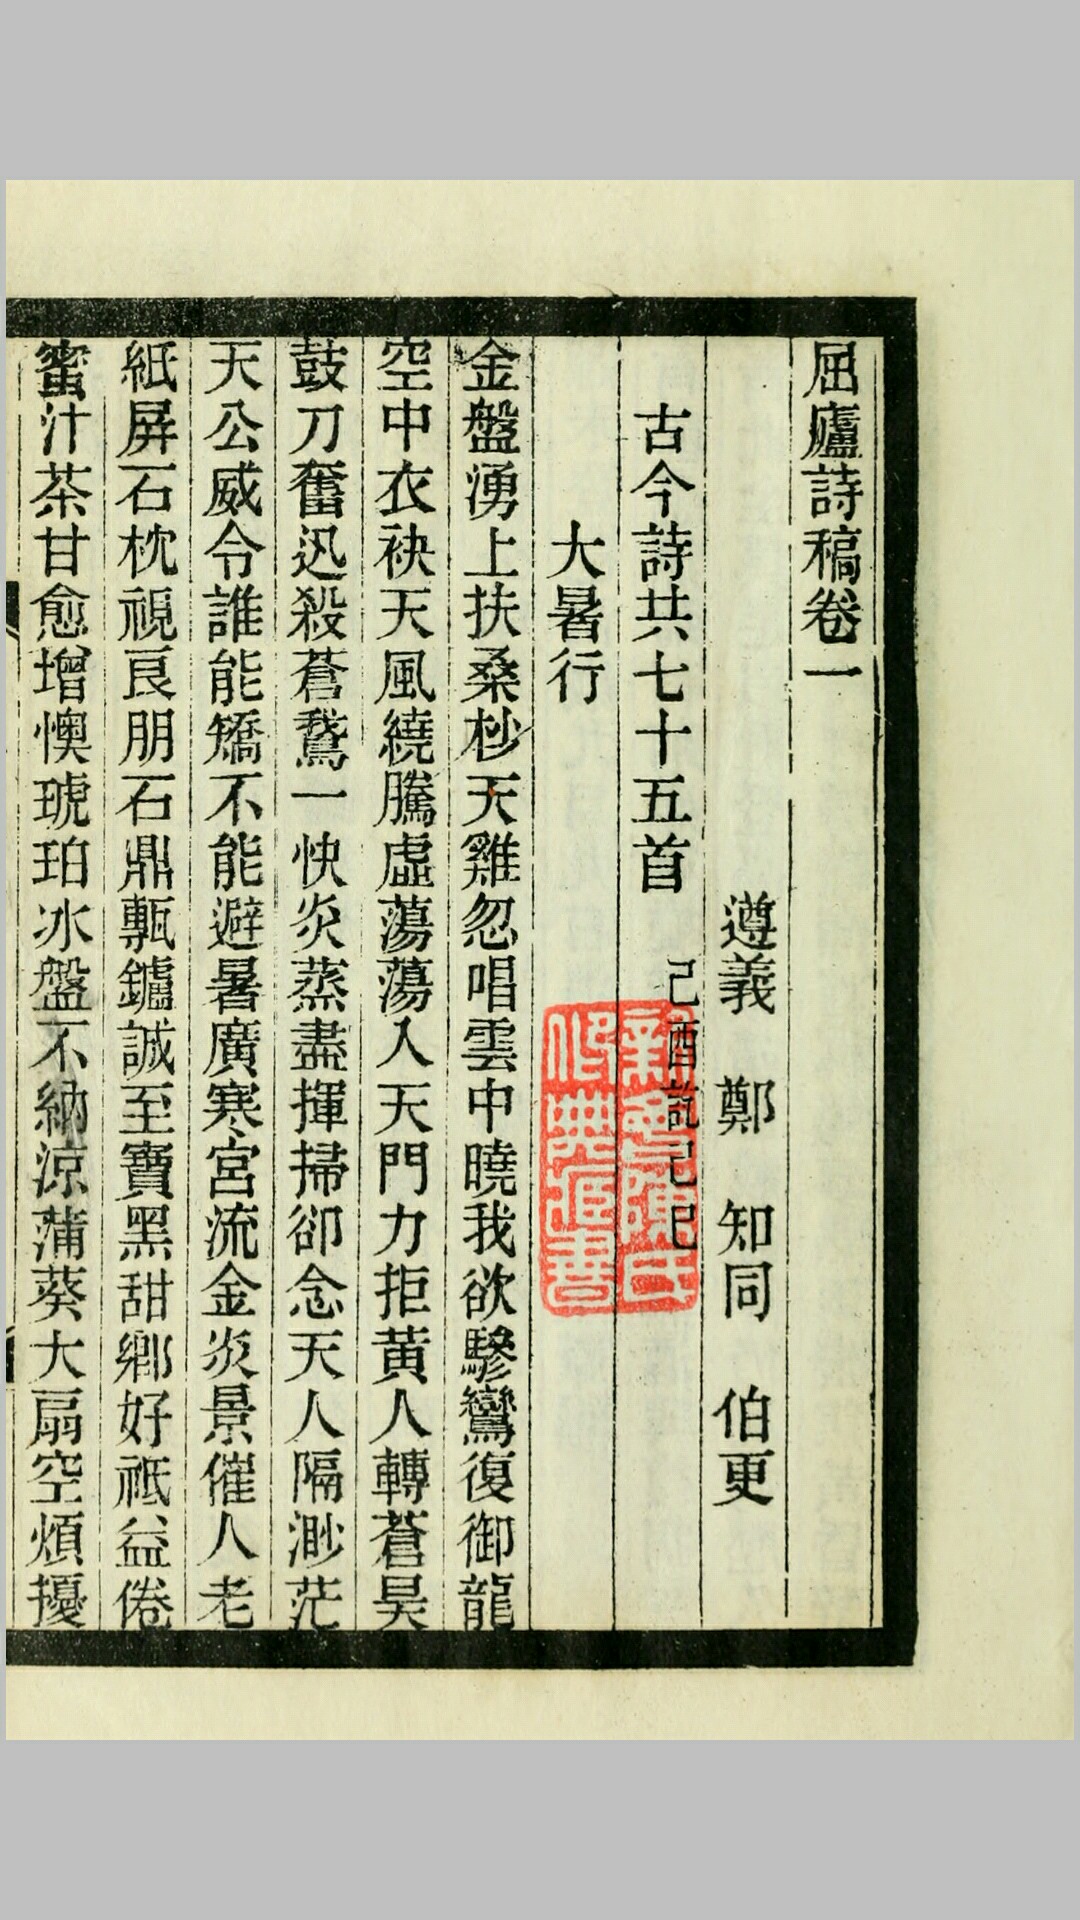 屈廬詩稿卷一
遵義 鄭 知同 伯更
古今詩共七十五首 己酉訖己巳
大暑行
金盤湧上扶桑杪天雞忽唱雲中曉我欲驂鸞復御龍
空中衣袂天風繞騰虛蕩蕩入天門力拒黃人轉蒼昊
鼓刀奮迅殺蒼鵞一快炎蒸盡揮掃卻念天人隔渺茫
天公威令誰能矯不能避暑廣寒宮流金炎景催人老
紙屏石枕視良朋石鼎甎鑪誠至寶黑甜鄉好祗益倦
蜜汁茶甘愈增懊琥珀冰盤不納涼蒲葵大扇空煩擾